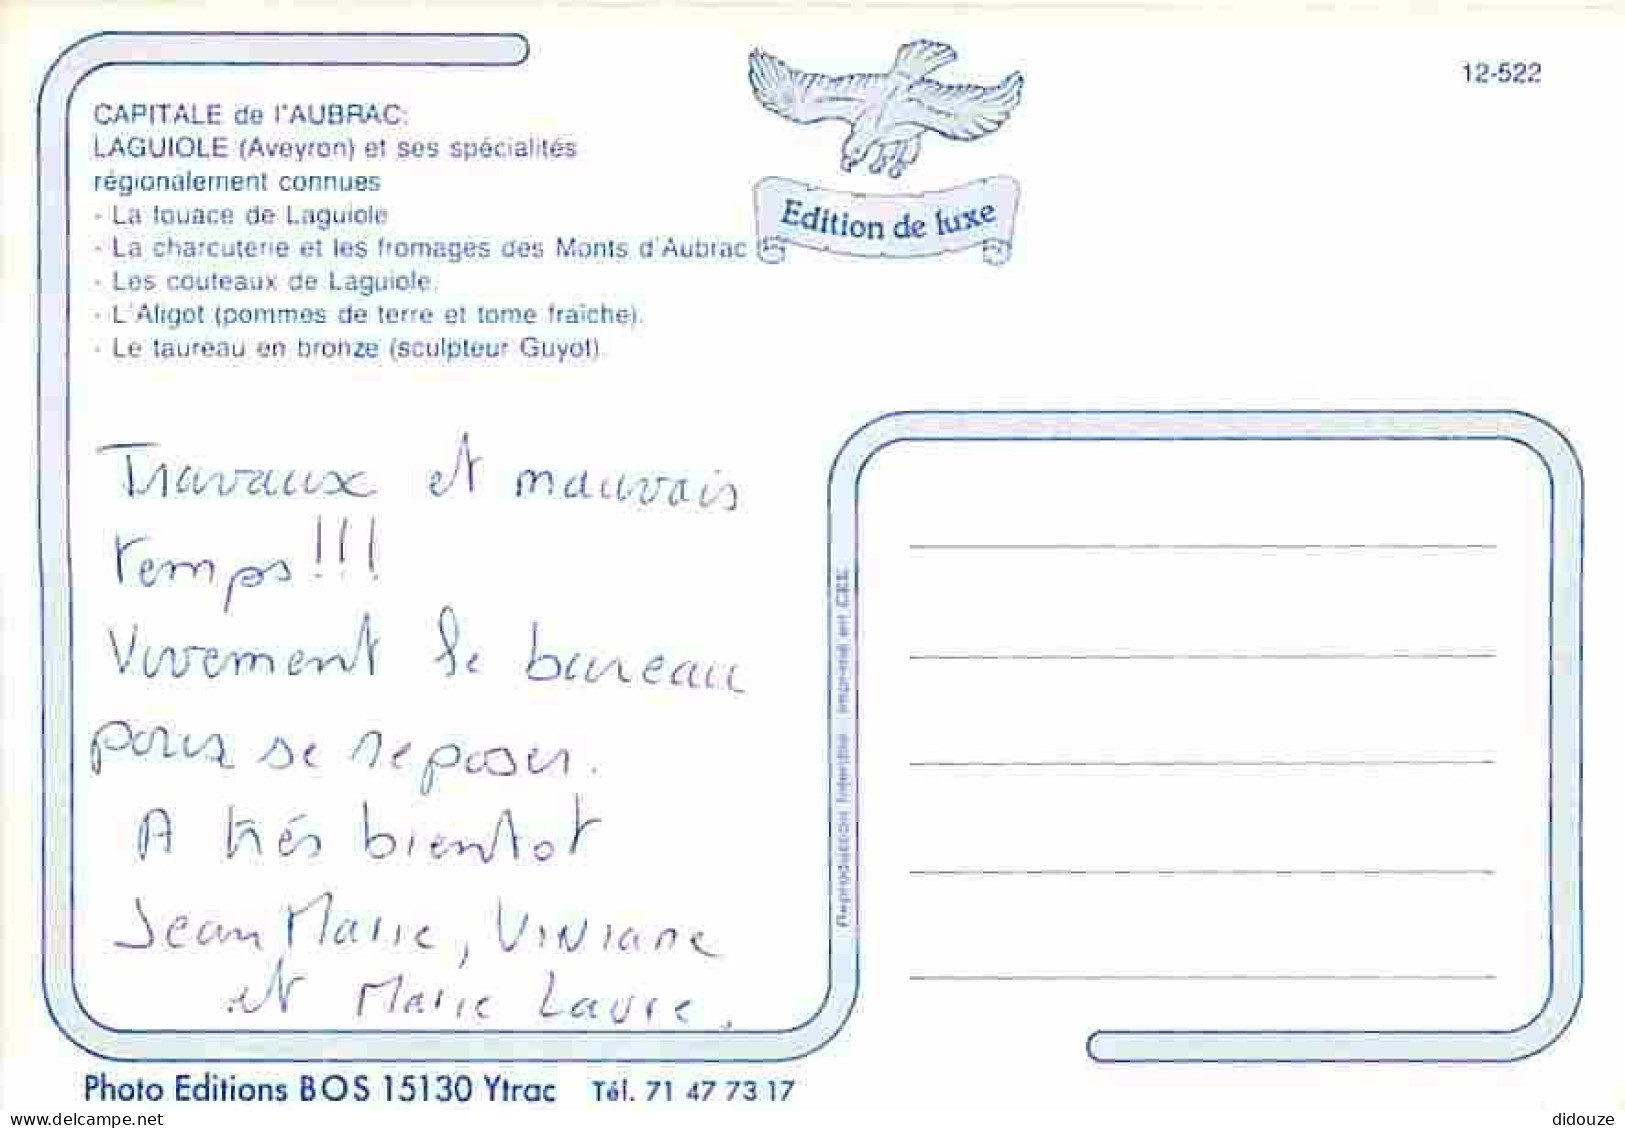 12-522
CAPITALE de l'AUBRAC:
LAGUIOLE (Aveyron) et ses spécialités
régionalement connues
- La fouace de Laguiole
- La charcuterie et les fromages des Monts d'Aubrac
- Les couteaux de Laguiole.
- L'Aligot (pommes de terre et tome fraîche).
- Le taureau en bronze (sculpteur Guyot).
Edition de luxe
Travaux et mauvais
temps!!!
Vivement le bureau
pour se reposer.
A très bientot
Jean Marie, Viviane
et Marie Laure.
Reproduction interdite Imprimé en CEE
Photo Editions BOS 15130 Ytrac Tél. 71 47 73 17
delcampe.net
didouze